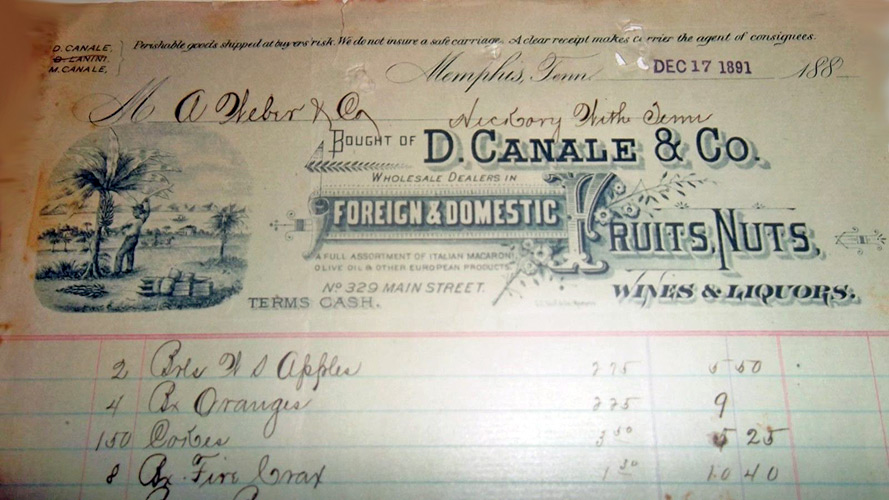 D. CANALE,
D. LANINI.
M. CANALE,
Perishable goods shipped at buyers risk. We do not insure a safe carriage. A clear receipt makes carrier the agent of consignees.
Memphis, Tenn DEC 17 1891 188
M A Weber & Co Hickory With Tenn
BOUGHT OF D. CANALE & CO.
WHOLESALE DEALERS IN
FOREIGN & DOMESTIC FRUITS, NUTS,
A FULL ASSORTMENT OF ITALIAN MACARONI
OLIVE OIL & OTHER EUROPEAN PRODUCTS.
No 329 MAIN STREET. WINES & LIQUORS.
TERMS CASH.
2 Brls W S Apples 275 5 50
4 Bx Oranges 225 9
150 3 50 5 25
8 Bx Fire Crax 1 30 10 40